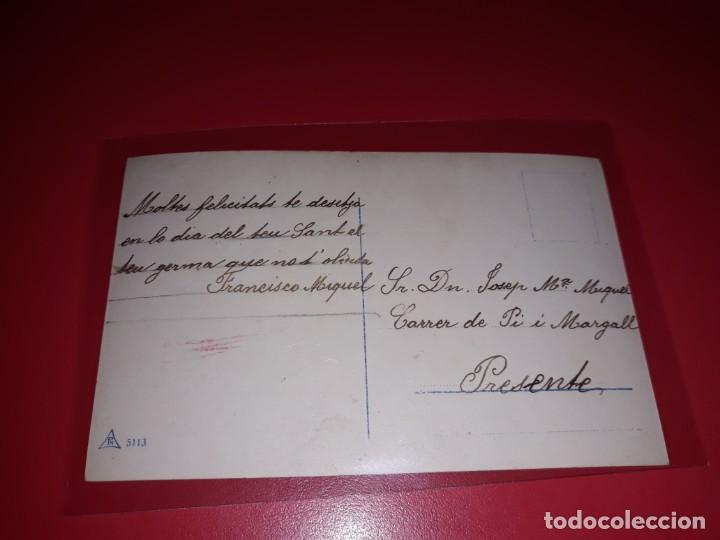 Moltes felicitats te desitja
en lo dia del teu Sant el
teu germa que no t'olvida
Francisco Miquel
Sr. Dn. Josep Mª Miquel
Carrer de Pi i Margall
Presente
5113
todocoleccion